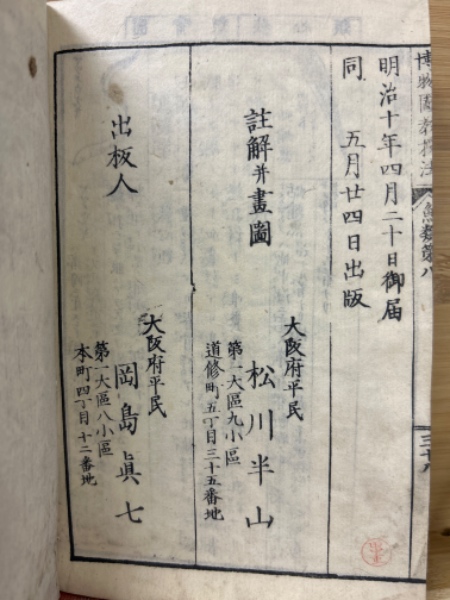 博物圖教授法
魚類第八
三十八
明治十年四月二十日御届
同 五月廿四日出版
註解并畫圖
大阪府平民
松川半山
第一大區九小區
道修町五丁目三十五番地
出板人
大阪府平民
岡島眞七
第一大區八小區
本町四丁目十二番地